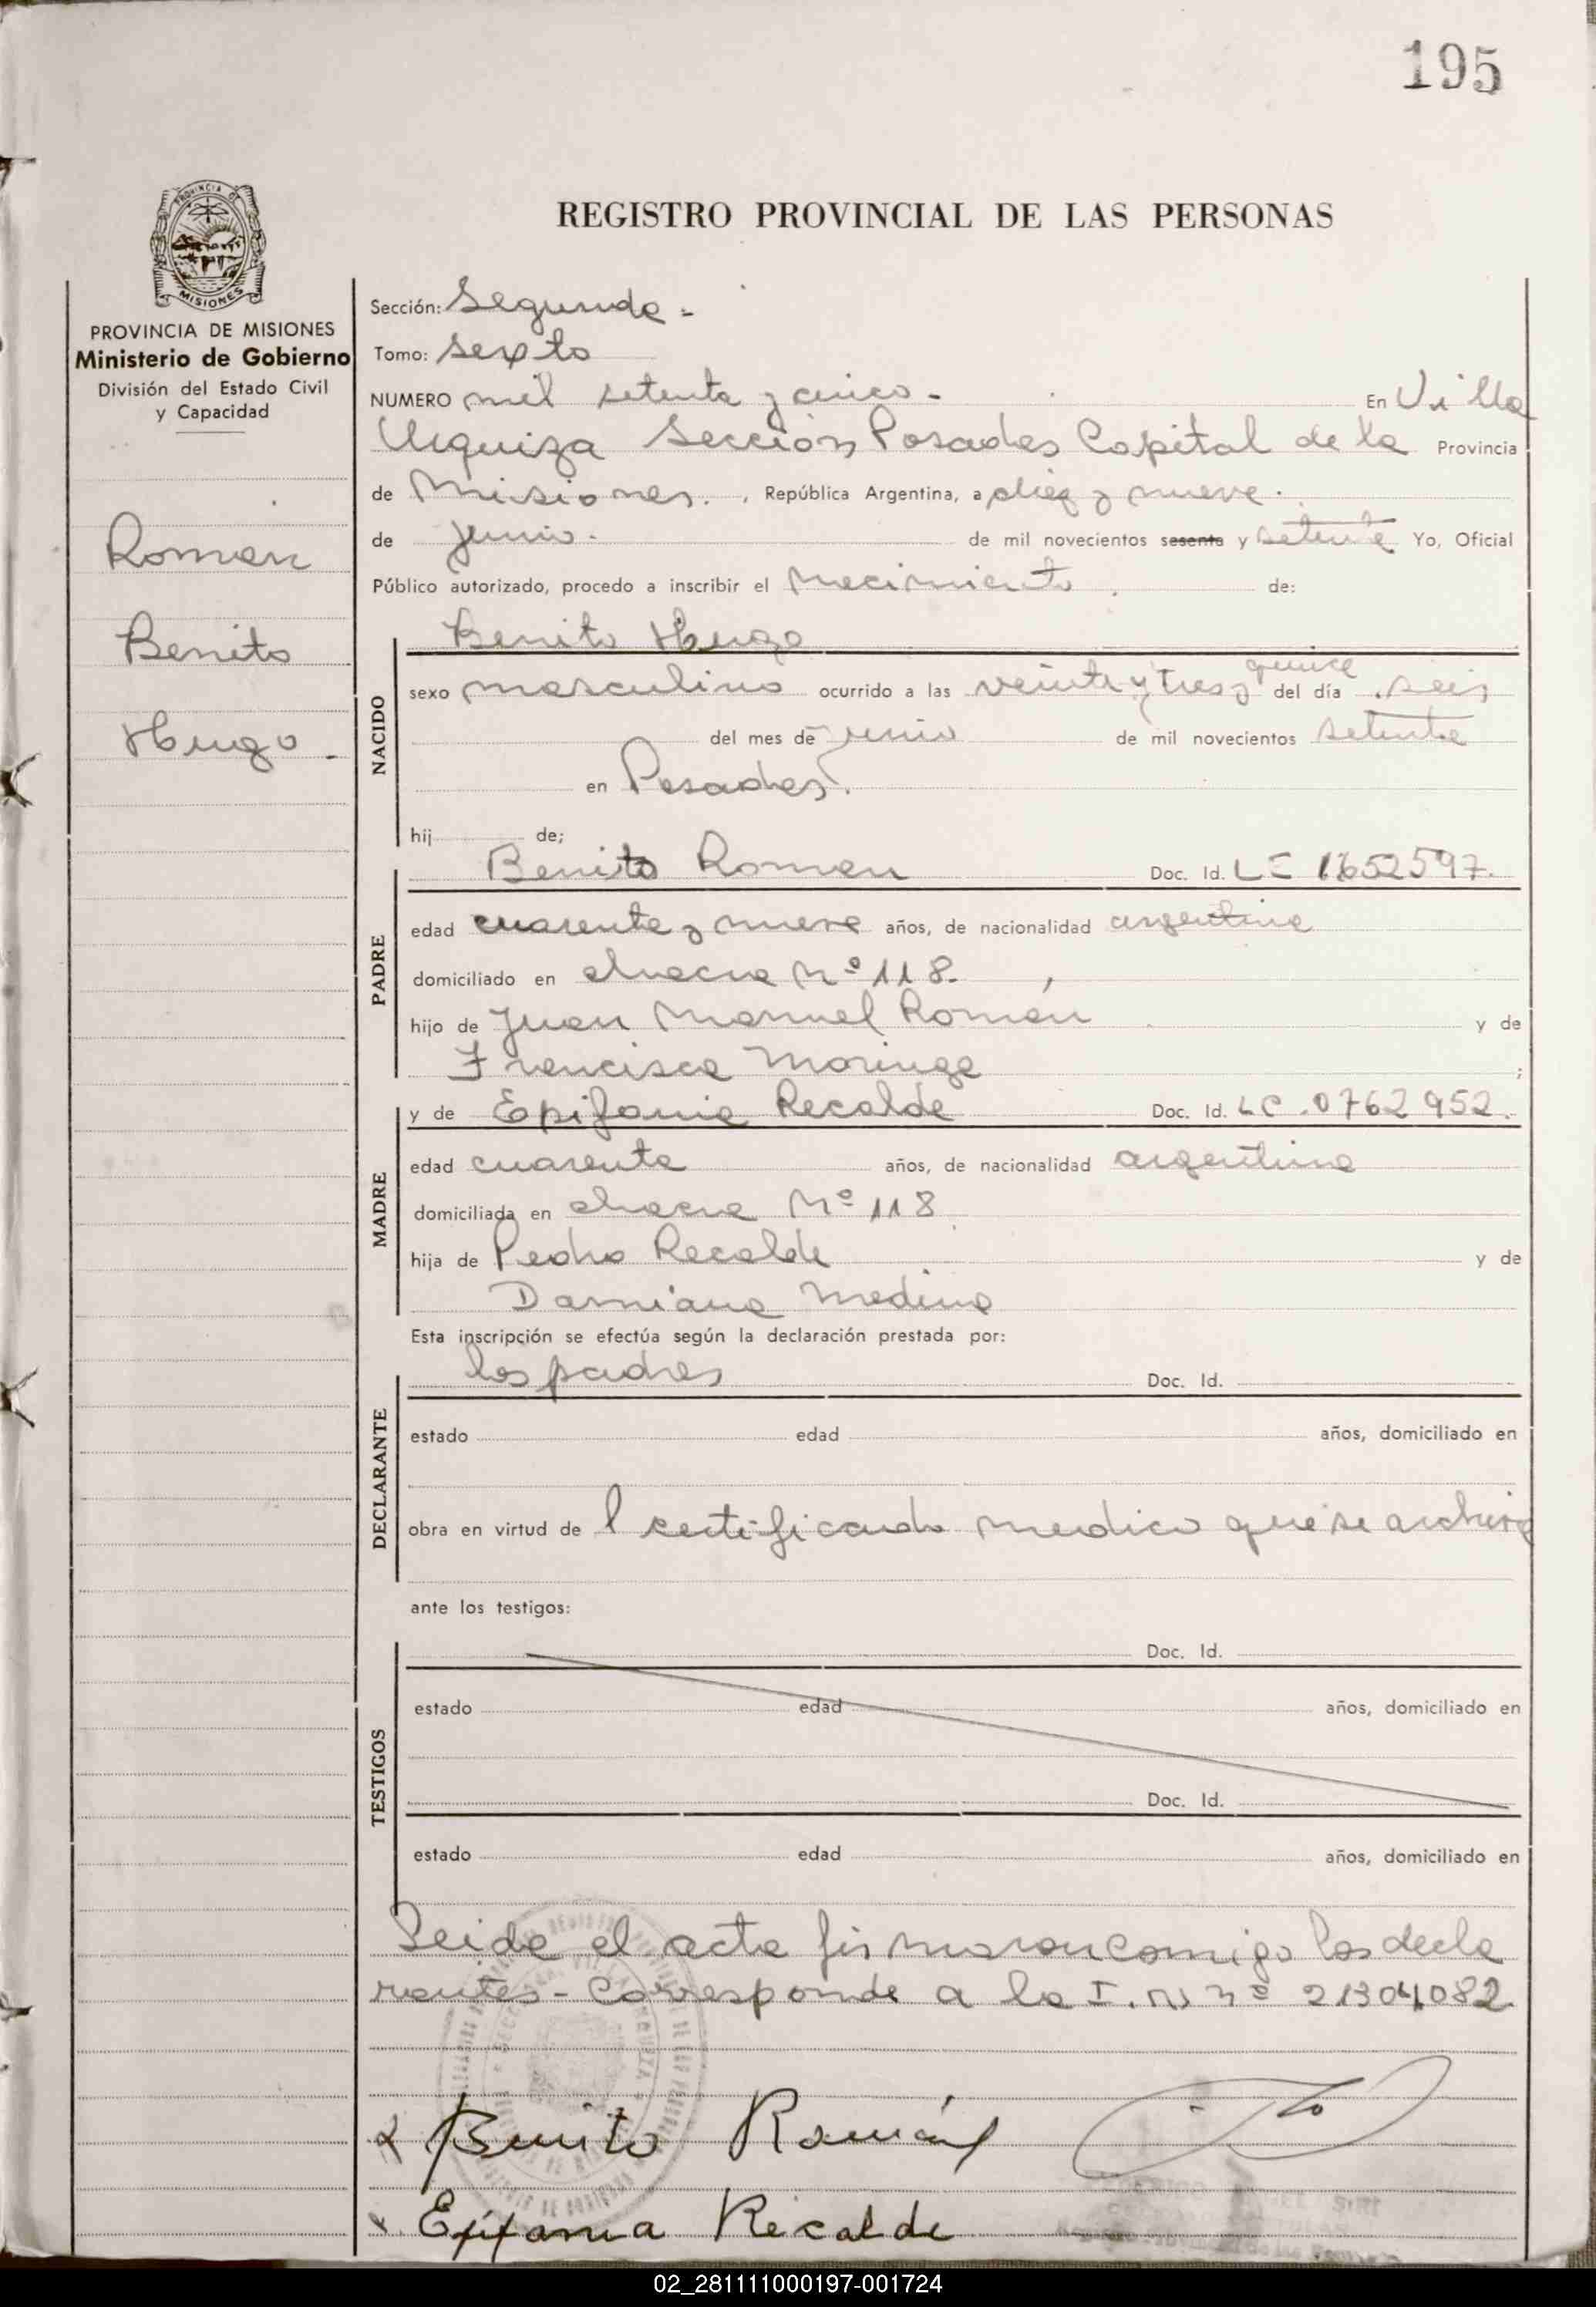 195
REGISTRO PROVINCIAL DE LAS PERSONAS
PROVINCIA DE MISIONES
Ministerio de Gobierno
División del Estado Civil
y Capacidad
Roman
Benito
Hugo -
Sección: Segunda =
Tomo: Sexto
NUMERO mil setenta y cinco - En Villa
Urquiza Sección Posadas Capital de la Provincia
de Misiones. , República Argentina, a diez y nueve.
de junio. de mil novecientos sesenta y setenta Yo, Oficial
Público autorizado, procedo a inscribir el nacimiento de:
Benito Hugo
NACIDO
sexo masculino ocurrido a las veinte y tres y quince del día seis
del mes de junio de mil novecientos setenta
en Posadas.
hij de;
Benito Roman Doc. Id. LE 1652597.
PADRE
edad cuarenta y nueve años, de nacionalidad argentina
domiciliado en chacra Nº 118.
hijo de Juan Manuel Román y de
Francisca Moringa ;
y de Epifania Recalde Doc. Id. LC.0762952.
MADRE
edad cuarenta años, de nacionalidad argentina
domiciliada en chacra Nº 118
hija de Pedro Recalde y de
Damiana Medina
Esta inscripción se efectúa según la declaración prestada por:
los padres Doc. Id.
DECLARANTE
estado edad años, domiciliado en
obra en virtud de l certificado medico que se archiva
ante los testigos:
Doc. Id.
TESTIGOS
estado edad años, domiciliado en
Doc. Id.
estado edad años, domiciliado en
Leida el acta firmaron comigo los decla
rantes - Corresponde a la I. N nº 21304082.
Benito Román
Epifania Recalde
02_281111000197-001724